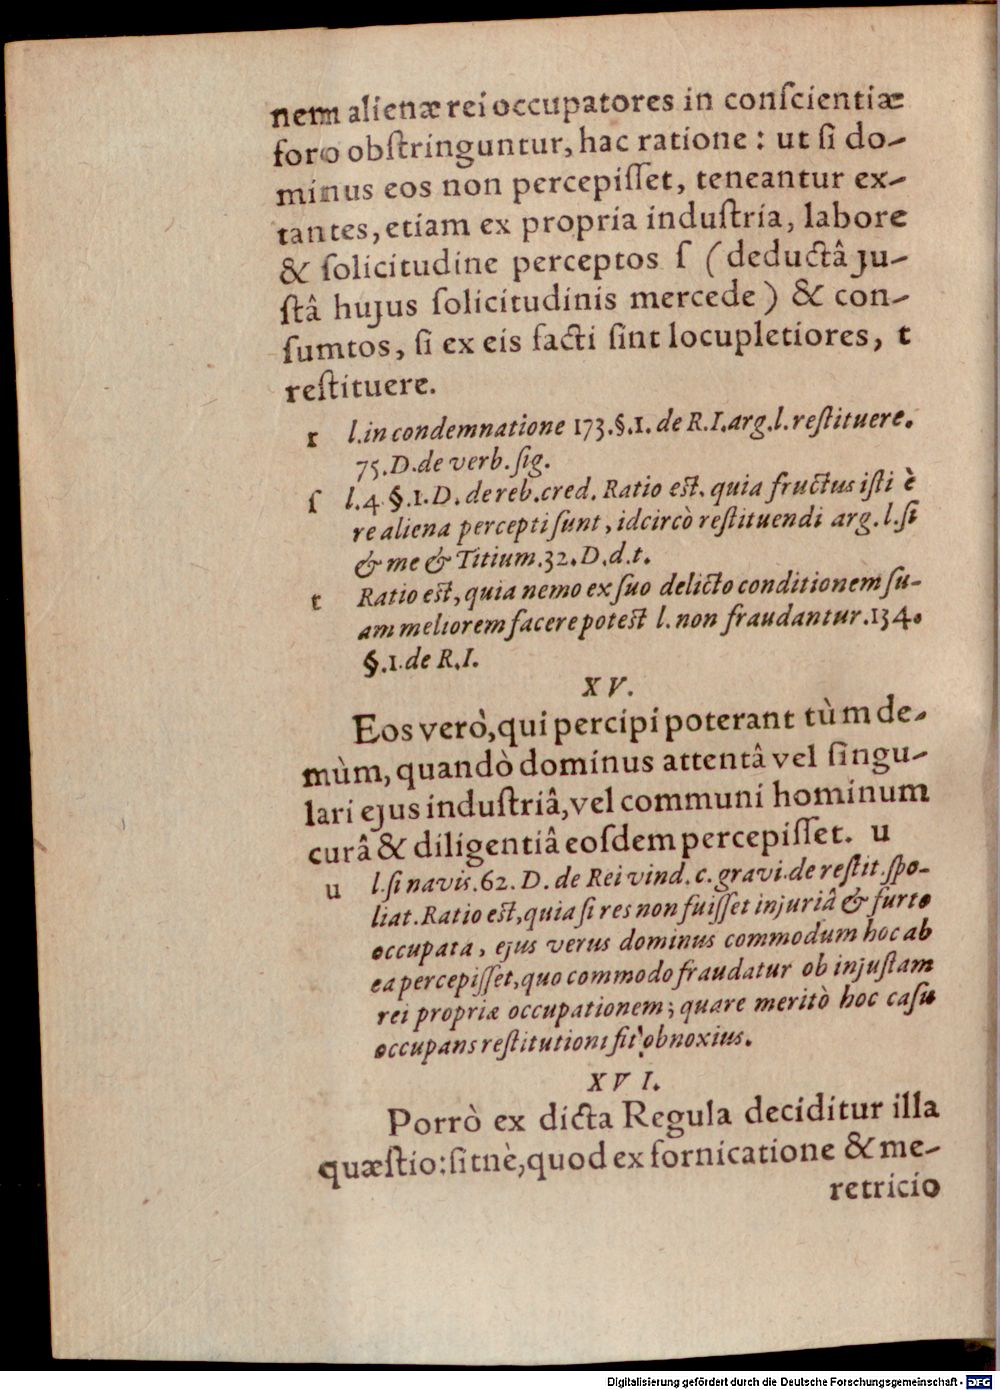 nem alienæ rei occupatores in conſcientiæ
foro obſtringuntur, hac ratione: ut ſi do-
minus eos non percepiſſet, teneantur ex-
tantes, etiam ex propria induſtria, labore
& ſolicitudine perceptos ſ (deductâ ju-
ſtâ hujus ſolicitudinis mercede) & con-
ſumtos, ſi ex eis facti ſint locupletiores, t
reſtituere.
r l. in condemnatione 173. §. 1. de R. I. arg. l. reſtituere.
75. D. de verb. ſig.
ſ l. 4 §. 1. D. de reb. cred. Ratio eſt. quia fructus iſti è
re aliena percepti ſunt, idcircò reſtituendi arg. l. ſi
& me & Titium. 32. D. d. t.
t Ratio eſt, quia nemo ex ſuo delicto conditionem ſu-
am meliorem facere poteſt l. non fraudantur. 134.
§. 1. de R. I.
XV.
Eos verò, qui percipi poterant tùm de-
mùm, quandò dominus attentâ vel ſingu-
lari ejus induſtriâ, vel communi hominum
curâ & diligentiâ eoſdem percepiſſet. u
u l. ſi navis. 62. D. de Rei vind. c. gravi. de reſtit. ſpo-
liat. Ratio eſt, quia ſi res non fuiſſet injuriâ & furto
occupata, ejus verus dominus commodum hoc ab
ea percepiſſet, quo commodo fraudatur ob injuſtam
rei propriæ occupationem; quare meritò hoc caſu
occupans reſtitutioni ſit obnoxius.
XVI.
Porrò ex dicta Regula deciditur illa
quæſtio: ſitnè, quod ex fornicatione & me-
retricio
Digitalisierung gefördert durch die Deutsche Forschungsgemeinschaft - DFG